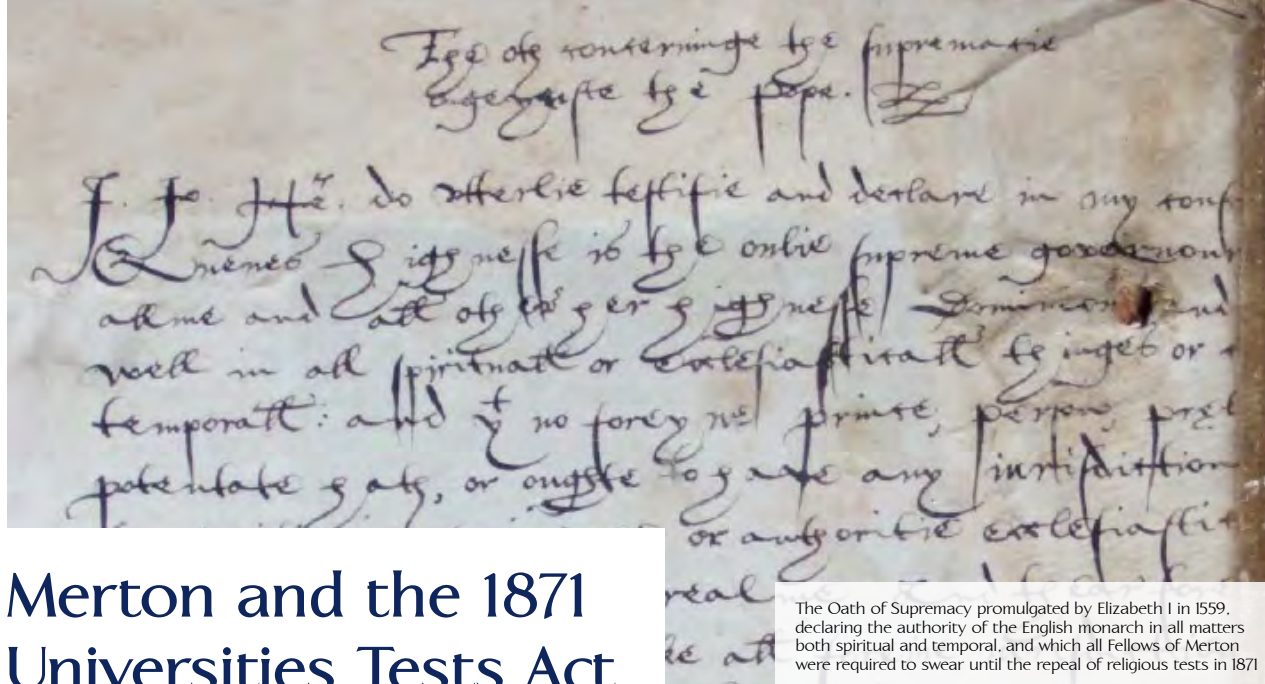 The oth concerninge the supremacie
ageynste the pope.
I. Jo. He. do utterlie testifie and declare in my cons
Quenes Highnesse is the onlie supreme governour
alme and all other her highnesse Dominions and
well in all spirituall or ecclesiasticall thinges or
temporall: and yt no foreyne prince, person, prel
potentate hath, or oughte to have any jurisdiction
or authoritie ecclesiastic
real
ke all
Merton and the 1871
Universities Tests Act
The Oath of Supremacy promulgated by Elizabeth I in 1559,
declaring the authority of the English monarch in all matters
both spiritual and temporal, and which all Fellows of Merton
were required to swear until the repeal of religious tests in 1871